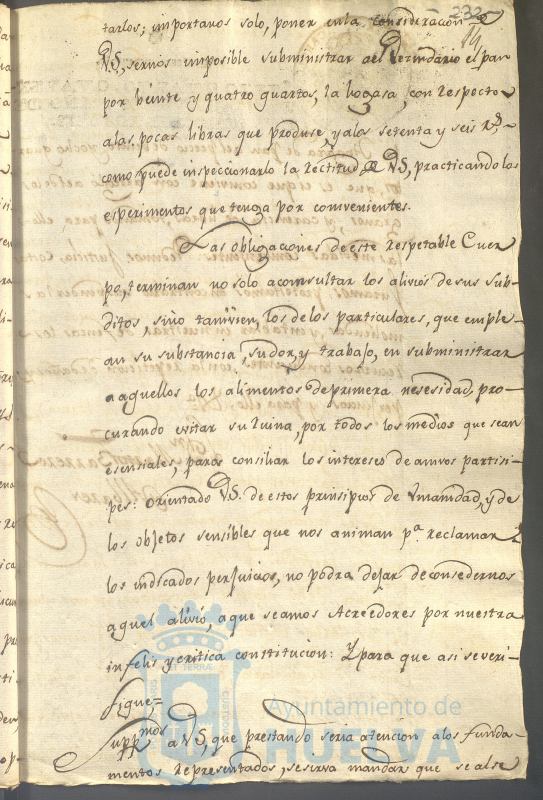 232
tarlos; importanos solo, poner en la consideracion
VS, sernos imposible subministrar al Vezindario el pan
por veinte y quatro quartos, la hogasa, con respecto
alas pocas libras que produse, y alos setenta y seis rs,
como puede inspeccionarlo la rectitud de VS, practicando los
esperimentos que tenga por comvenientes.
Las obligaciones de este respetable Cuer-
po, terminan no solo a consultar los alivios de sus sub-
ditos, sino tamvien, los de los particulares, que emple-
an su substancia, sudor, y trabajo, en subministrar
a aquellos los alimentos de primera nesesidad, pro-
curando evitar su ruina, por todos los medios que sean
esensiales, para consiliar los intereses de amvos partisi-
pes: orientado VS. de estos prinsipios de Umanidad, y de
los objetos sensibles que nos animan pa. reclamar
los indicados perjuicios, no podra dejar de consedernos
aquel alivio, a que seamos Acreedores por nuestra
infelis y critica constitucion: Y para que asi se veri-
fique=
Suppmos a VS, que prestando seria atencion alos funda-
mentos representados, se sirva mandar que se alse
Ayuntamiento de
HUELVA